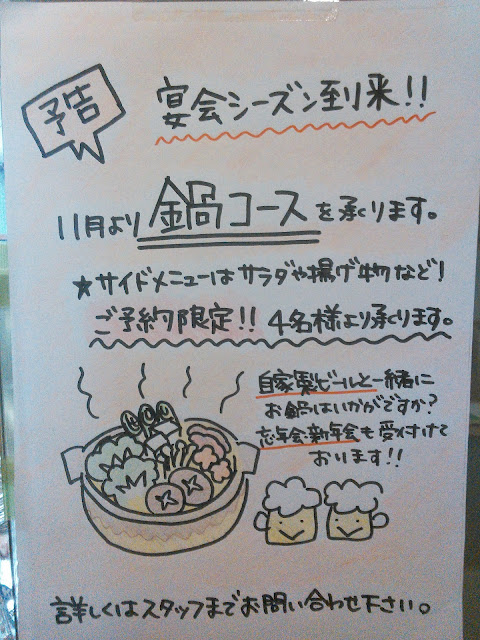 予告
宴会シーズン到来!!
11月より鍋コースを承ります。
★サイドメニューはサラダや揚げ物など!
ご予約限定!! 4名様より承ります。
自家製ビールと一緒に
お鍋はいかがですか?
忘年会・新年会も受け付けて
おります!!
詳しくはスタッフまでお問い合わせ下さい。